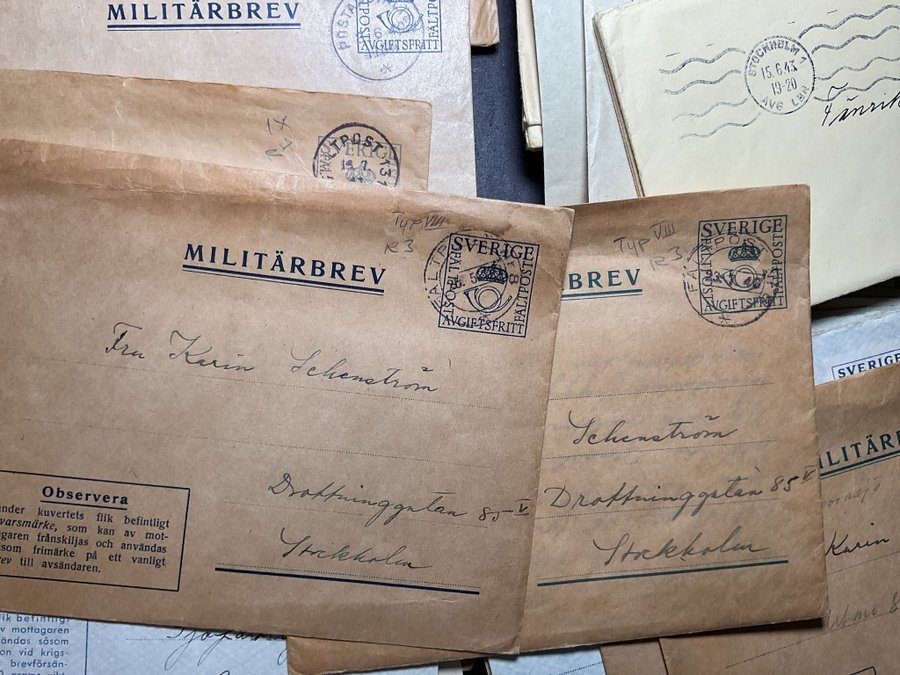 MILITÄRBREV
POSTA
AVGIFTSFRITT
FÄLTPOST
STOCKHOLM 1
15.6.43
19-20
AVG LBR
TX
SVERIGE
FÄLTPOST 137
MILITÄRBREV
TYP VIII
R3
SVERIGE
FÄLTPOST
FÄLTPOST
AVGIFTSFRITT
Fru Karin Schenström
Drottninggatan 85 V
Stockholm
Observera
under kuvertets flik befintligt
varsmärke, som kan av mot-
agaren frånskiljas och användas
som frimärke på ett vanligt
brev till avsändaren.
BREV
TYP VIII
R3
SVERIGE
FÄLTPOST
AVGIFTSFRITT
Schenström
Drottninggatan 85 V
Stockholm
SVERIGE
MILITÄR
Karin
lik befintligt
v mottagaren
ändas såsom
on vid krigs-
brevförsän-